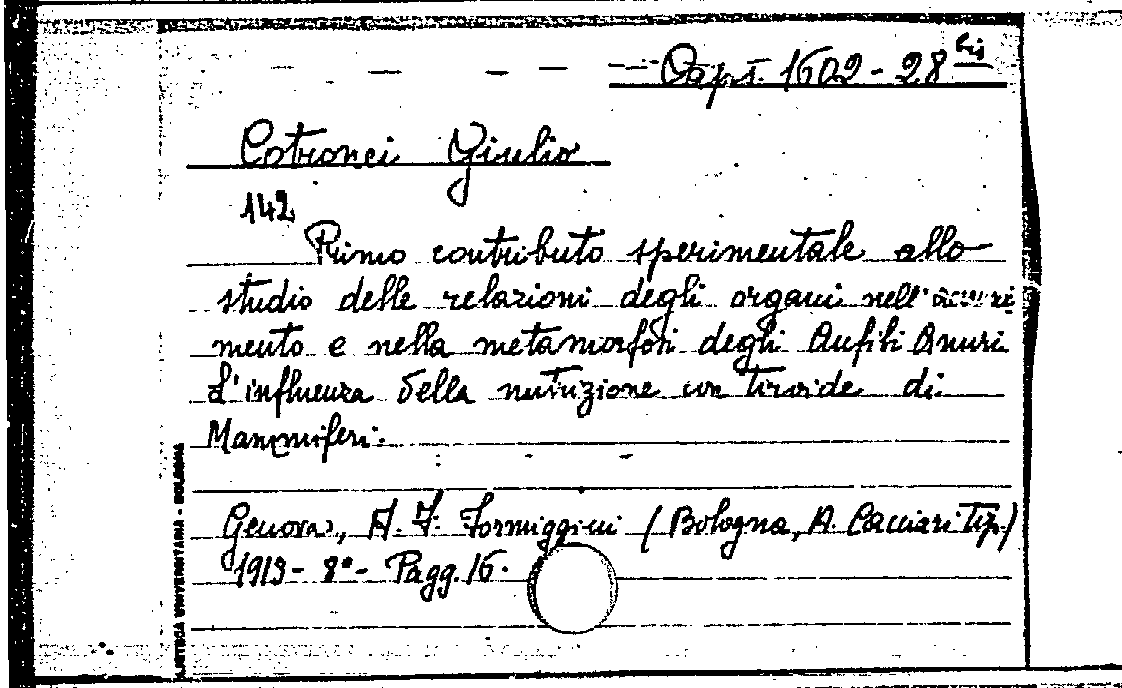 Caps. 1602 - 28 bis
Cotronei Giulio
142
Primo contributo sperimentale allo
studio delle relazioni degli organi nell'accresci
mento e nella metamorfosi degli Anfibi Anuri
L'influenza della nutrizione con tiroide di
Mammiferi.
Genova, A. F. Formiggini (Bologna, A. Cacciari Tip.)
1913 - 8° - Pagg. 16.
UNIVERSITARIA - BOLOGNA